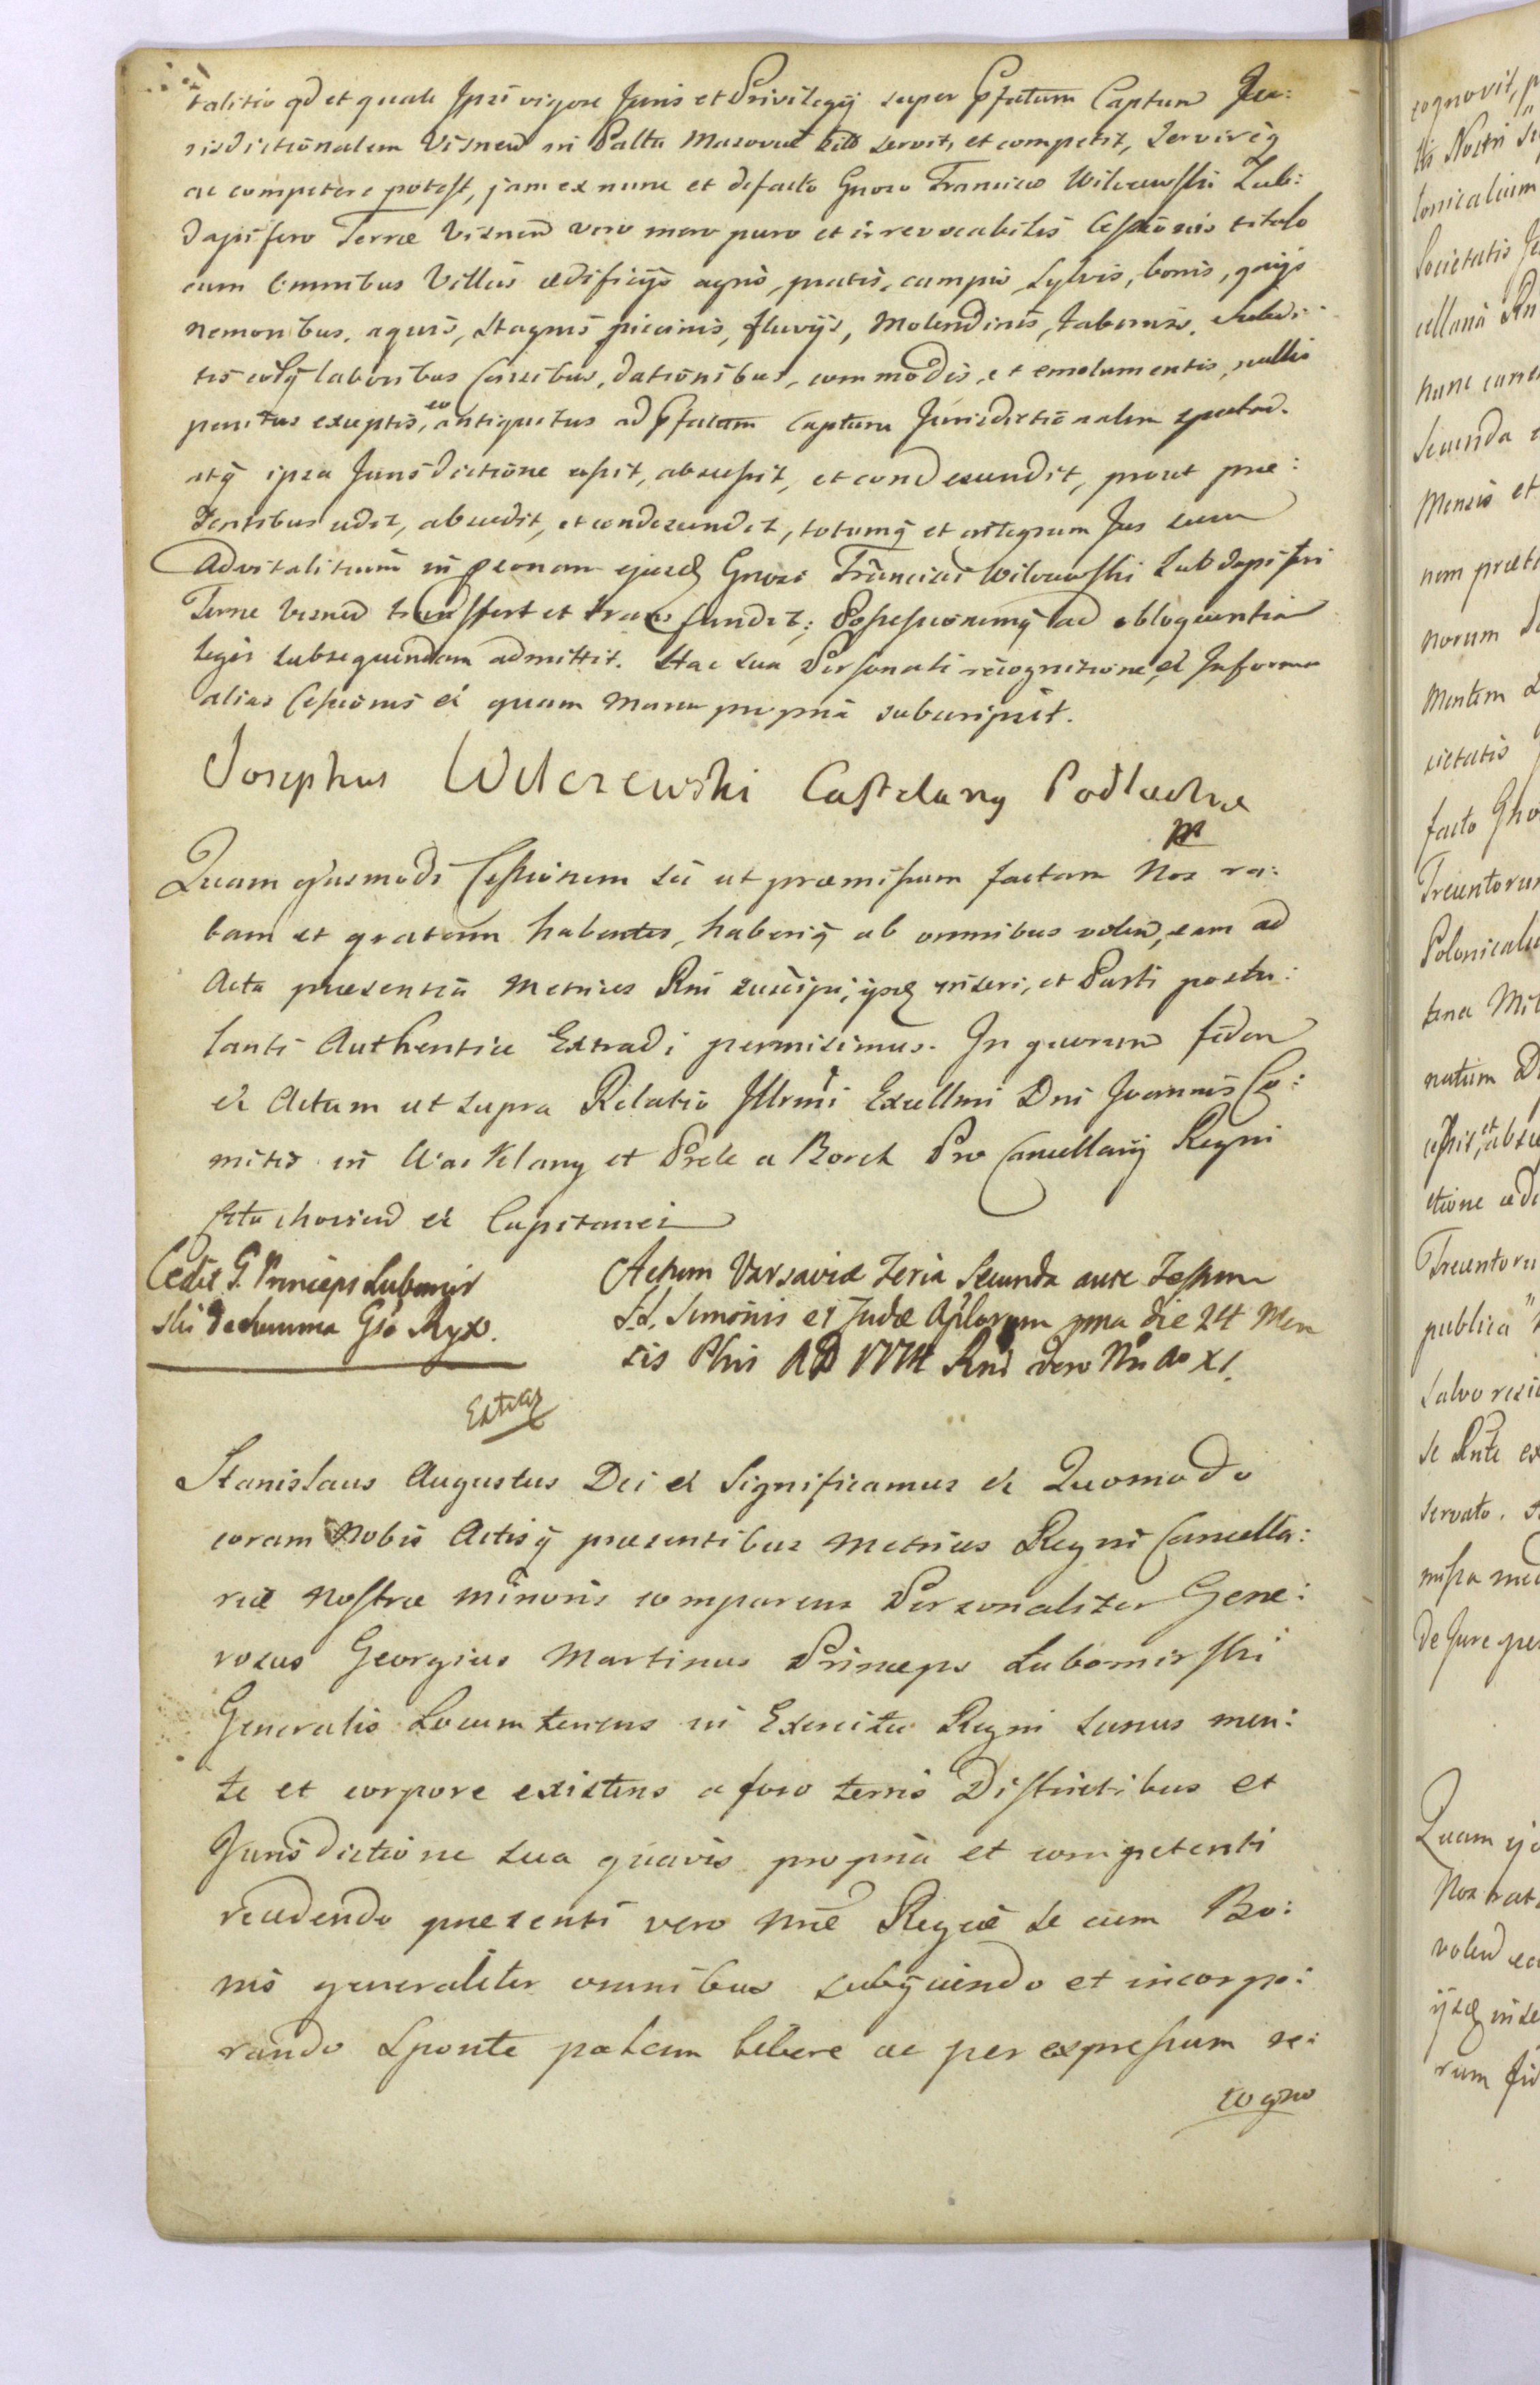 talitio qd et quale Ipsi vigore Juris et Privilegij super Pfatum Captum Ju:
risdictionalem Visnen in Paltu Masoviae sito servit, et competit, servireq
ac competere potest, jam ex nunc et defacto Gnoso Francisco Wilczewski Sub:
dapifero Terrae Visnen vero mero puro et irrevocabilis Cessionis titulo
cum Omnibus Villis aedificijs agris, pratis, campis Sylvis, bonis, gaijs
nemoribus, aquis, stagnis piscinis, fluvijs, Molendinis, tabernis, subdi
tis eorq laboribus Censibus, dationibus, commodis, et emolumentis, nullis
penitus exceptis, eo antiquitus ad Pfatum Captum Jurisdictionalem spectan.
atq ipsa Jurisdictione cessit, abscessit, et condescendit, prout prae:
sentibus cedit, abscedit, et condescendit, totumq et integrum Jus suum
Advitalitium in psonam ejusd Gnosi Francisci Wilczewski Subdapiferi
Terrae Visnen transffert et transfundit; Possessionemq ad obloquentia
legis subsequendam admittit. Hac sua Personali recognitione, et Inforna
alias Cessionis et quam Manu propria subscripsit.
Josephus Wilczewski Castelang Podlachiae
mp
Quam ejusmodi Cessionem sic ut praemissum factam Nos ra:
tam et gratam habentes, haberiq ab omnibus volen, eam ad
Acta praesentia Metrices Rni suscipi, ijsq inseri, et Parti postu:
lanti Authentice Extradi permisimus. In quorum fidem
et Actum ut supra Relatio Illrmi Excellmi Dni Joannis Co:
mitis in Warklany et Prele a Borch Pro Cancellarij Regni
et Capitanei
Cedit G. Princeps Lubomir
ski Gso Ryx.
Actum Varsaviae Feria Secunda ante Festum
S.S. Simonis et Judae Aplorum pma die 24 Men
sis Pbris AD 1774 Rni vero Nri ao XI.
Extrad
Stanislaus Augustus Dei et Significamus et Quomodo
coram Nobis Actisq praesentibus Metrices Regni Cancella:
riae Nostrae minoris comparens Personaliter Gene:
rosus Georgius Martinus Princeps Lubomirski
Generalis Locumtenens in Exercitu Regni sanus men:
te et corpore existens a foro terris Districtibus et
Jurisdictione sua quavis propria et competenti
recedendo praesenti vero Mtce Regiae se cum Bo:
nis generaliter omnibus subijciendo et incorpo:
rando Sponte palam libere ac per expressum re:
cogno